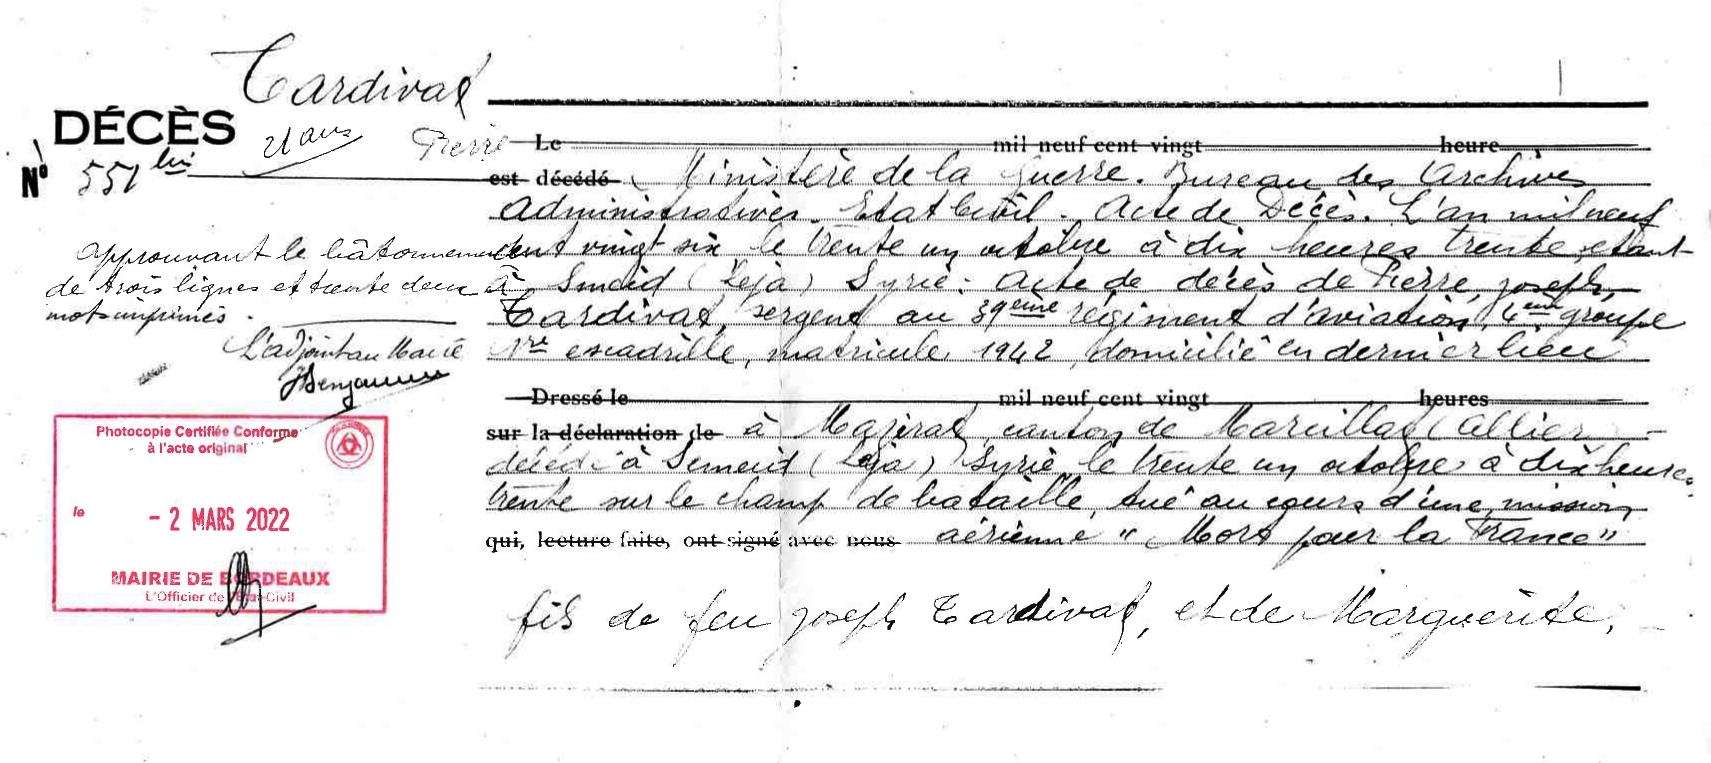 Tardivat
DÉCÈS
21 ans
Pierre
N° 551 bis
Le mil neuf cent vingt heure
est décédé Ministère de la Guerre. Bureau des Archives
Administratives. Etat Civil. Acte de Décès. L'an mil neuf
cent vingt six, le trente un octobre à dix heures trente, étant
à Smeid (Leja) Syrie. Acte de décès de Pierre, Joseph,
Tardivat, sergent au 39ème régiment d'aviation, 4ème groupe
1re escadrille, matricule 1942, domicilié en dernier lieu
approuvant le bâtonnement
de trois lignes et trente deux
mots imprimés.
L'adjoint au Maire
Dressé le mil neuf cent vingt heures
sur la déclaration de à Mazirat, canton de Marcillat (Allier)
décédé à Semeid (Leja) Syrie, le trente un octobre à dix heures
trente sur le champ de bataille, tué au cours d'une mission
qui, lecture faite, ont signé avec nous aérienne "Mort pour la France"
fils de feu Joseph Tardivat, et de Marguerite,
Photocopie Certifiée Conforme
à l'acte original
le
- 2 MARS 2022
MAIRIE DE BORDEAUX
L'Officier de l'Etat-Civil